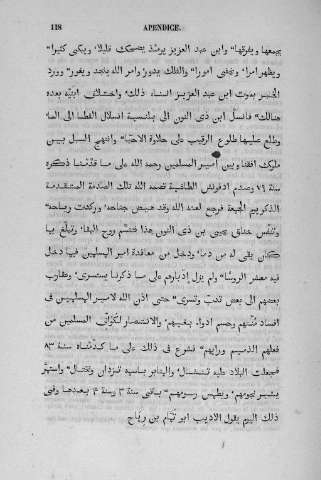 118 APENDICE.
يجمعها ويفرقها" وابن عبد العزيز يومئذ يضحك قليلا، ويبكى كثيرا"
ويظهر امرا" ويخفى امورا" والفلك يدور وامر الله ينجد ويغور" وورد
الخبر بموت ابن عبد العزيز اثناء ذلك، واختلاف ابنيه بعده
هنالك" فانسل ابن ذى النون الى بلنسية انسلال القطا الى الما"
وطلع عليها طلوع الرقيب على خلوة الاحبا" وانتهج السبل بين
ملوك افقنا وبين امير المسلمين رحمه الله على ما قدمنا ذكره
سنة ٧٩ وصدم اذفونش الطاغية قصمه الله تلك الصدمة المتقدمة
الذكر يوم الجمعة فرجع لعنه الله وقد هيض جناحه، وركدت رياحه"
وتنفس خناق يحيى بن ذى النون هذا فتنسم روح البقا، وتبلغ بما
كان بقى له من ذما، ودخل من معاقدة امير المسلمين فيما دخل
فيه معشر الروسا" ولم يزل ادبارهم على ما ذكرنا يستسرى، وعقارب
بعضهم الى بعض تدب وتسرى" حتى اذن الله لامير المسلمين فى
افساد سعيهم وحسم ادواء بغيهم، والانتصار لكواف المسلمين من
فعلهم الذميم ورايهم" فشرع فى ذلك على ما قدمناه سنة ٨٣
فجعلت البلاد عليه تنثال، والمنابر باسمه تزدان وتختال" واستمر
ينثر نجومهم، ويطمس رسومهم" باقى سنة ٣ وسنة ٤ بعدها وفى
ذلك اليوم يقول الاديب ابو تمام بن رباح